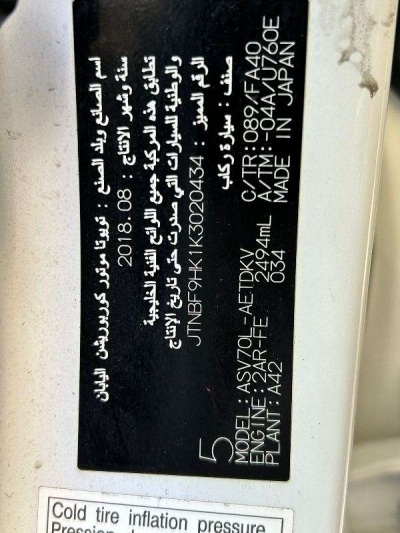 اسم الصانع وبلد الصنع : تويوتا موتور كوربوريشن اليابان
سنة وشهر الانتاج : 2018.08
تطابق هذه المركبة جميع اللوائح الفنية الخليجية
والوطنية للسيارات التي صدرت حتى تاريخ الإنتاج
الرقم المميز : JTNBF9HK1K3020434
صنف : سيارة ركاب
5
MODEL: ASV70L-AETDKV C/TR: 089/FA40
ENGINE: 2AR-FE 2494mL A/TM: -04A/U760E
PLANT: A42 034 MADE IN JAPAN
Cold tire inflation pressure